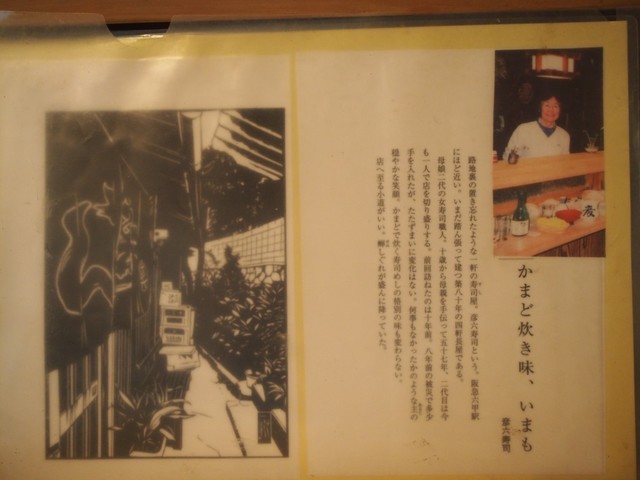 かまど炊き味、いまも
彦六寿司
路地裏の置き忘れたような一軒の寿司屋。彦六寿司という。阪急六甲駅
にほど近い。いまだ踏ん張って建つ築八十年の四軒長屋である。
母娘二代の女寿司職人。十歳から母親を手伝って五十七年、二代目は今
も一人で店を切り盛りする。前回訪ねたのは十年前。八年前の震災で多少
手を入れたが、たたずまいに変化はない。何事もなかったかのような主の
穏やかな笑顔。かまどで炊く寿司めしの格別の味も変わらない。
店へ至る小道がいい。蝉しぐれが盛んに降っていた。